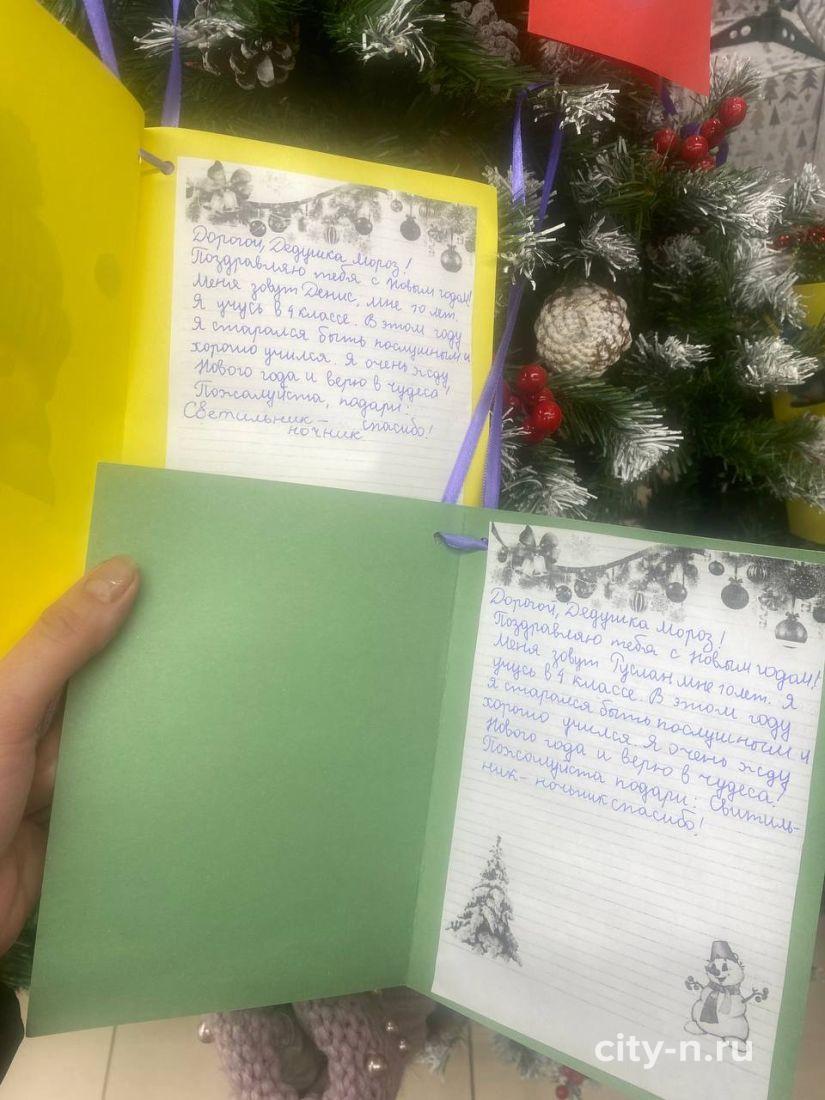 Дорогой, Дедушка Мороз!
Поздравляю тебя с Новым годом!
Меня зовут Денис, мне 10 лет.
Я учусь в 4 классе. В этом году
Я старался быть послушным и
хорошо учился. Я очень жду
Нового года и верю в чудеса!
Пожалуйста, подари:
Светильник –
ночник спасибо!
Дорогой, Дедушка Мороз!
Поздравляю тебя с Новым годом!
Меня зовут Руслан мне 10 лет. Я
учусь в 4 классе. В этом году
я старался быть послушным и
хорошо учился. Я очень жду
Нового года и верю в чудеса!
Пожалуйста подари: Свитиль-
ник – ночьник спасибо!
city-n.ru